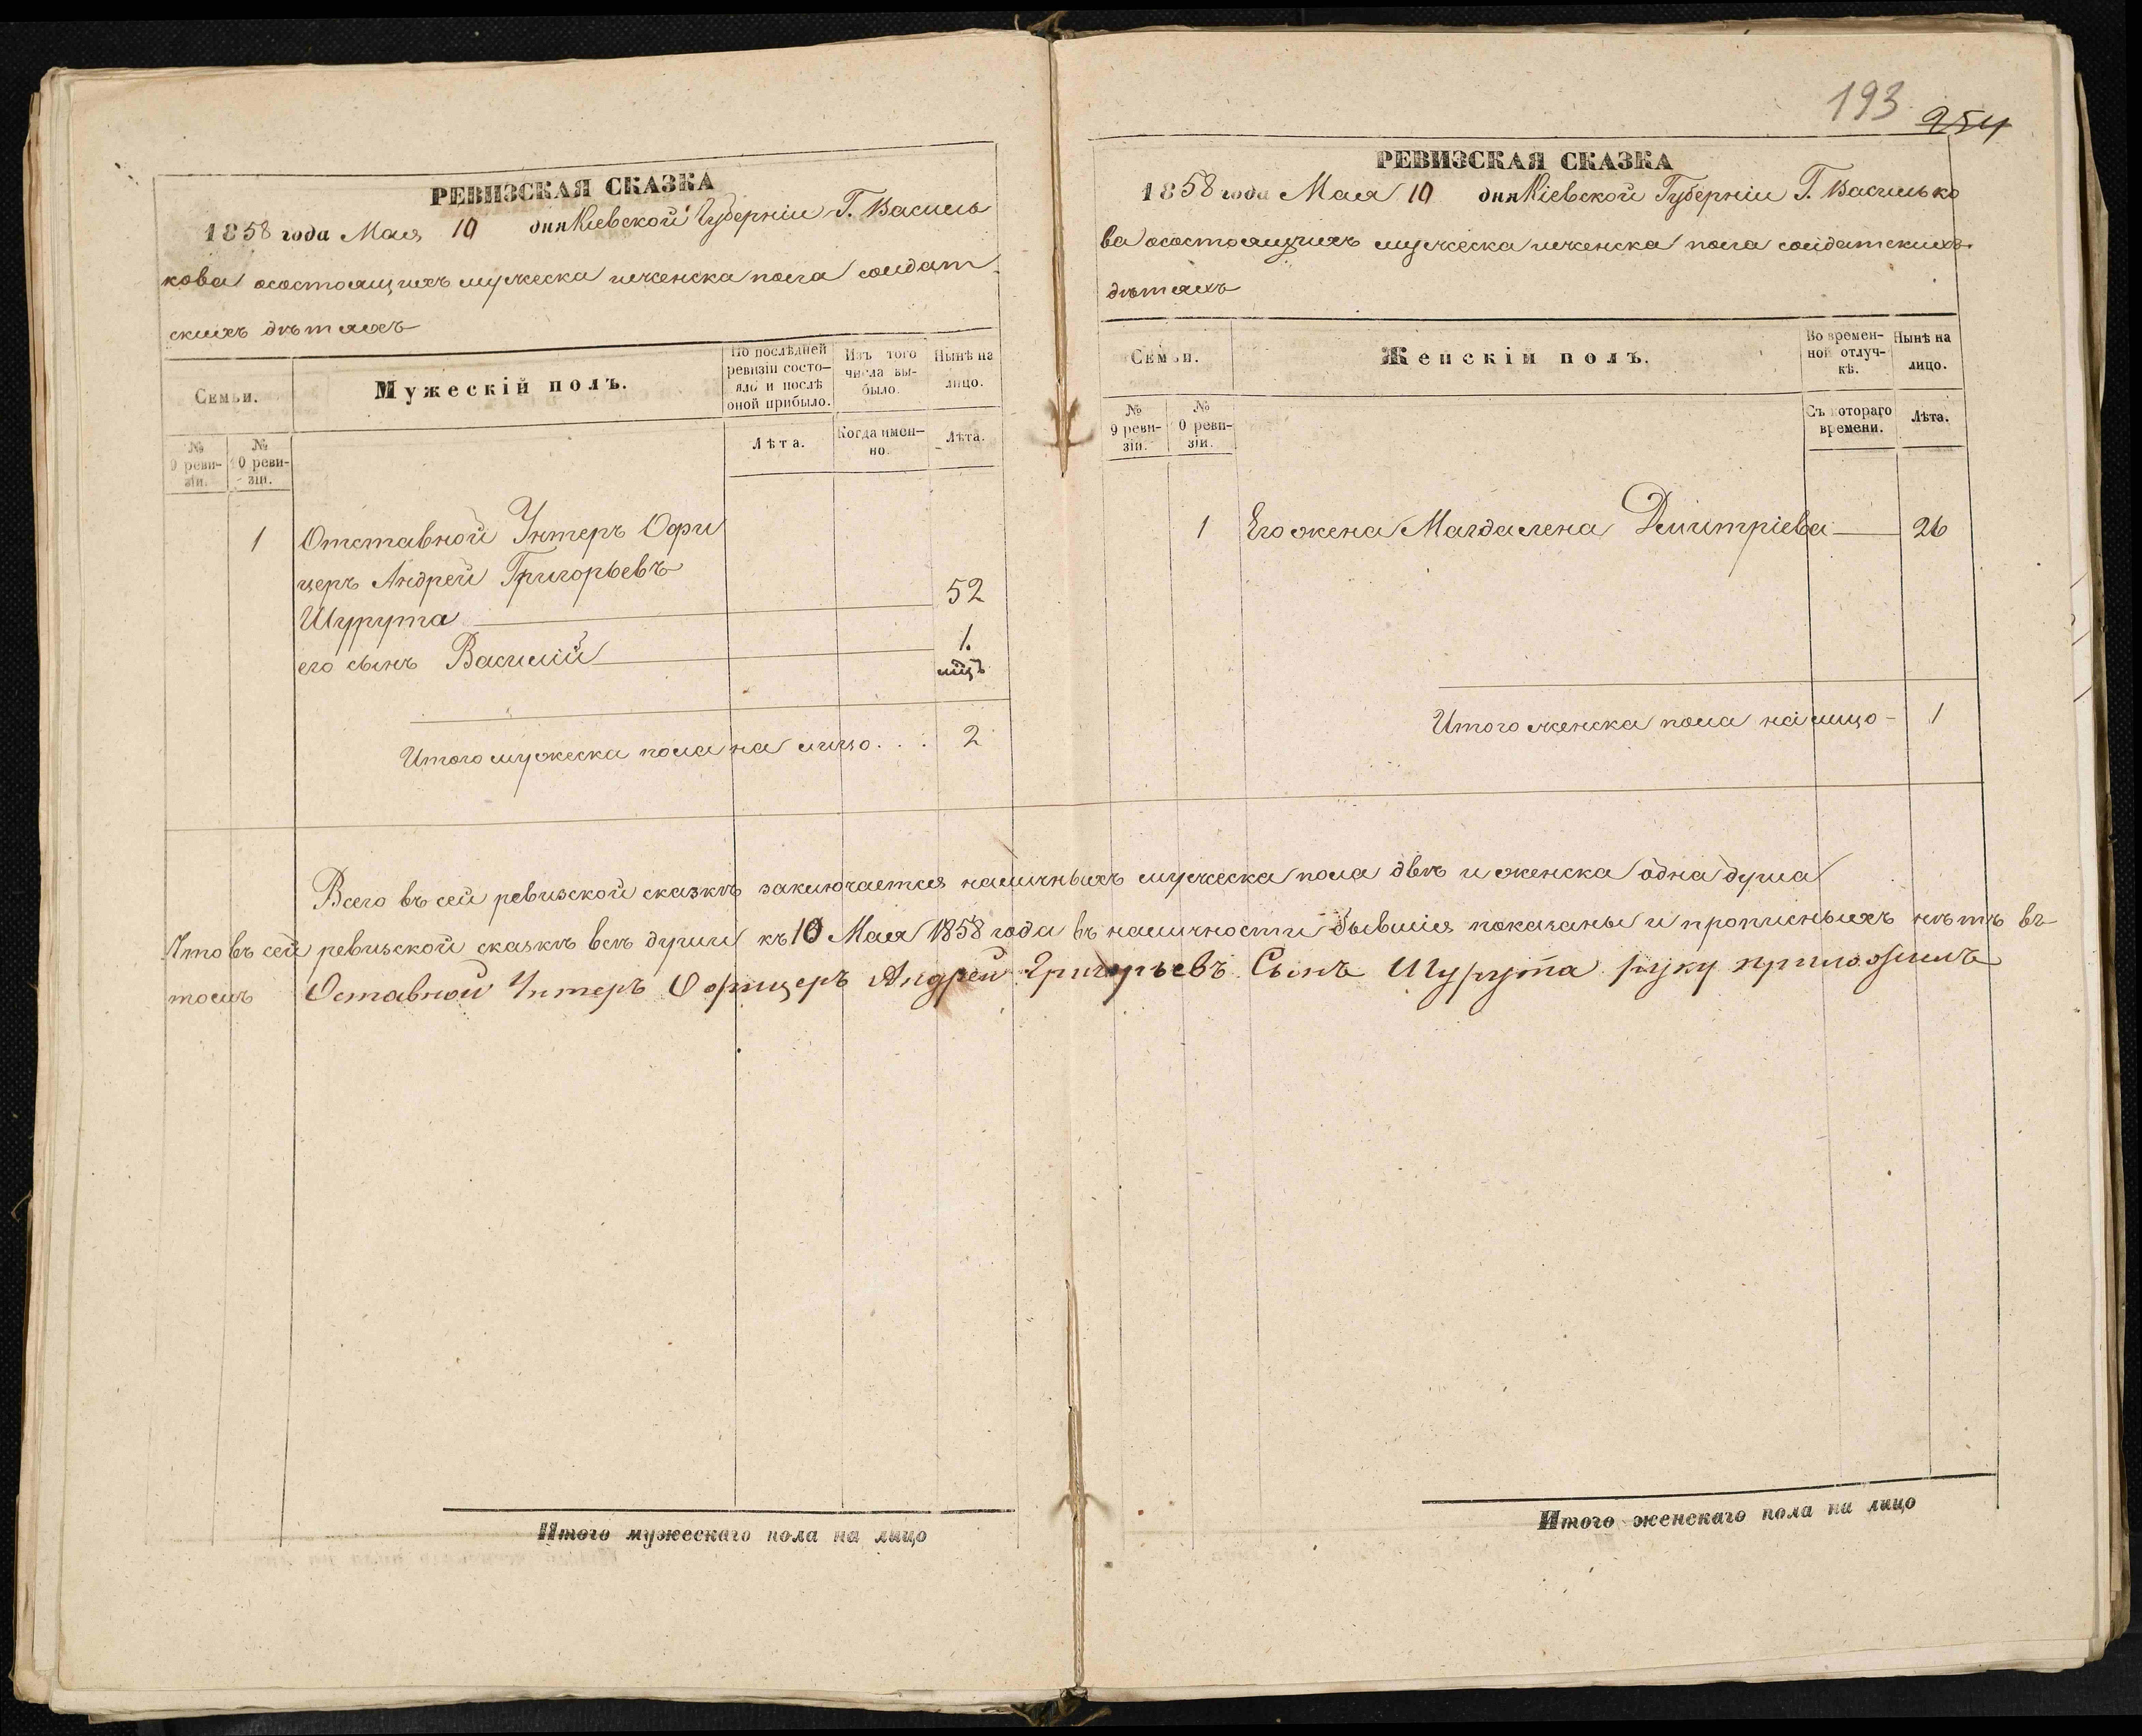 РЕВИЗСКАЯ СКАЗКА
1858 года Мая 10 дня Кіевской Губерніи Г. Василь
кова осостоящихъ мужеска иженска пола солдат
скихъ дѣтяхъ
Семьи.
Мужескій полъ.
По послѣдней ревизіи состояло и послѣ оной прибыло.
Изъ того числа выбыло.
Нынѣ на лицо.
№ 9 ревизіи.
№ 10 ревизіи.
Лѣта.
Когда именно.
Лѣта.
1 Отставной Унтеръ Офи
церъ Андрей Григорьевъ
Шурута 52
его сынъ Василій 1.
мцъ
Итого мужеска пола на лицо . . . 2
193
254
РЕВИЗСКАЯ СКАЗКА
1858 года Мая 10 дня Кіевской Губерніи Г. Василько
ва осостоящихъ мужеска иженска пола солдатскихъ
дѣтяхъ
Семьи.
Женскій полъ.
Во временной отлучкѣ.
Нынѣ на лицо.
№ 9 ревизіи.
№ 0 ревизіи.
Съ котораго времени.
Лѣта.
1 Его жена Магдалена Дмитріева 26
Итого женска пола налицо - 1
Всего въ сей ревизской сказкѣ заключается наличныхъ мужеска пола двѣ и женска одна душа
Что въ сей ревизской сказкѣ всѣ души къ 10 Мая 1858 года въ наличности бывшія показаны и прописныхъ нѣтъ въ
томъ Оставной Унтеръ Офицеръ Андрей Григорьевъ Сынъ Шурута руку приложилъ
Итого мужескаго пола на лицо
Итого женскаго пола на лицо